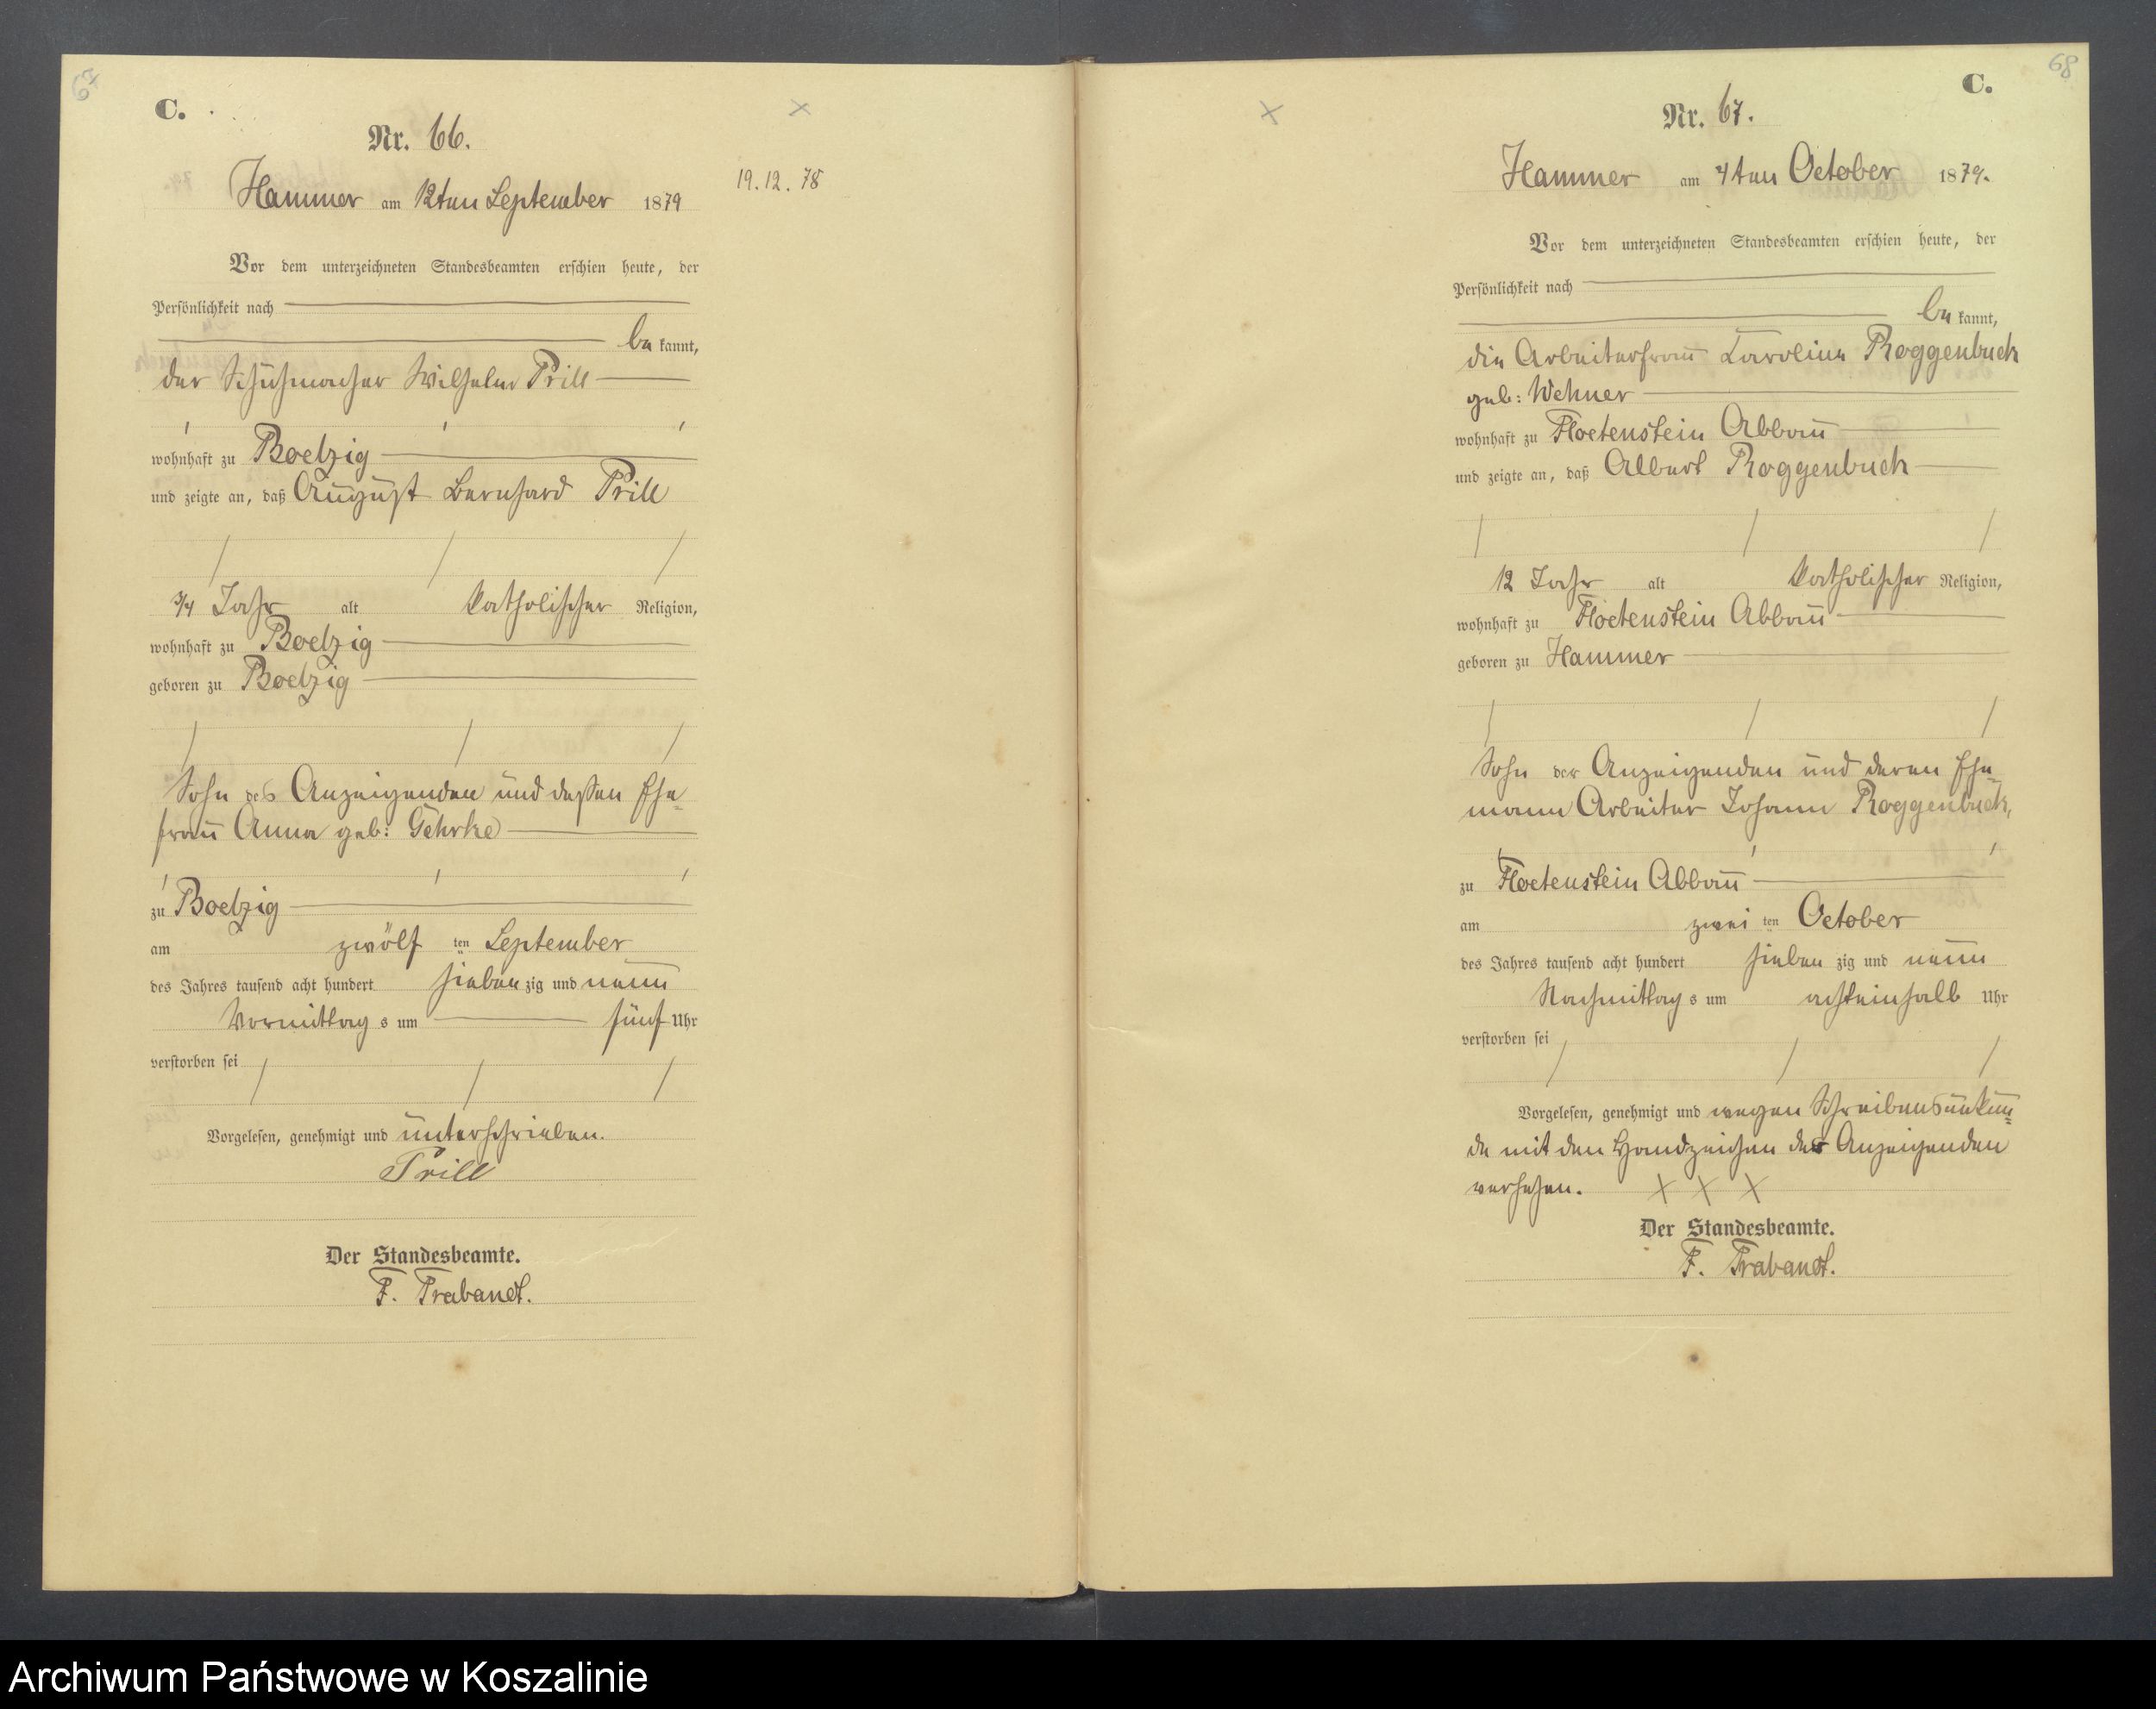 67
C.
Nr. 66.
Hammer am 12ten September 1879
19.12.78
Vor dem unterzeichneten Standesbeamten erschien heute, der
Persönlichkeit nach
be kannt,
der Schuhmacher Wilhelm Prill
wohnhaft zu Boelzig
und zeigte an, daß August Bernhard Prill
3/4 Jahr alt katholischer Religion,
wohnhaft zu Boelzig
geboren zu Boelzig
Sohn des Anzeigenden und deßen Ehe-
frau Anna geb: Gehrke
zu Boelzig
am zwölf ten September
des Jahres tausend acht hundert sieben zig und neun
Vormittag s um fünf Uhr
verstorben sei
Vorgelesen, genehmigt und unterschrieben.
Prill
Der Standesbeamte.
F. Trabandt.
68
C.
Nr. 67.
Hammer am 4ten October 1879.
Vor dem unterzeichneten Standesbeamten erschien heute, der
Persönlichkeit nach
be kannt,
die Arbeiterfrau Caroline Roggenbuck
geb: Wehner
wohnhaft zu Floetenstein Abbau
und zeigte an, daß Albert Roggenbuck
12 Jahr alt katholischer Religion,
wohnhaft zu Floetenstein Abbau
geboren zu Hammer
Sohn der Anzeigenden und deren Ehe-
mann Arbeiter Johann Roggenbuck,
zu Floetenstein Abbau
am zwei ten October
des Jahres tausend acht hundert sieben zig und neun
Nachmittag s um achteinhalb Uhr
verstorben sei
Vorgelesen, genehmigt und wegen Schreibensunkun-
de mit den Handzeichen der Anzeigenden
versehen. X X X
Der Standesbeamte.
F. Trabandt.
Archiwum Państwowe w Koszalinie